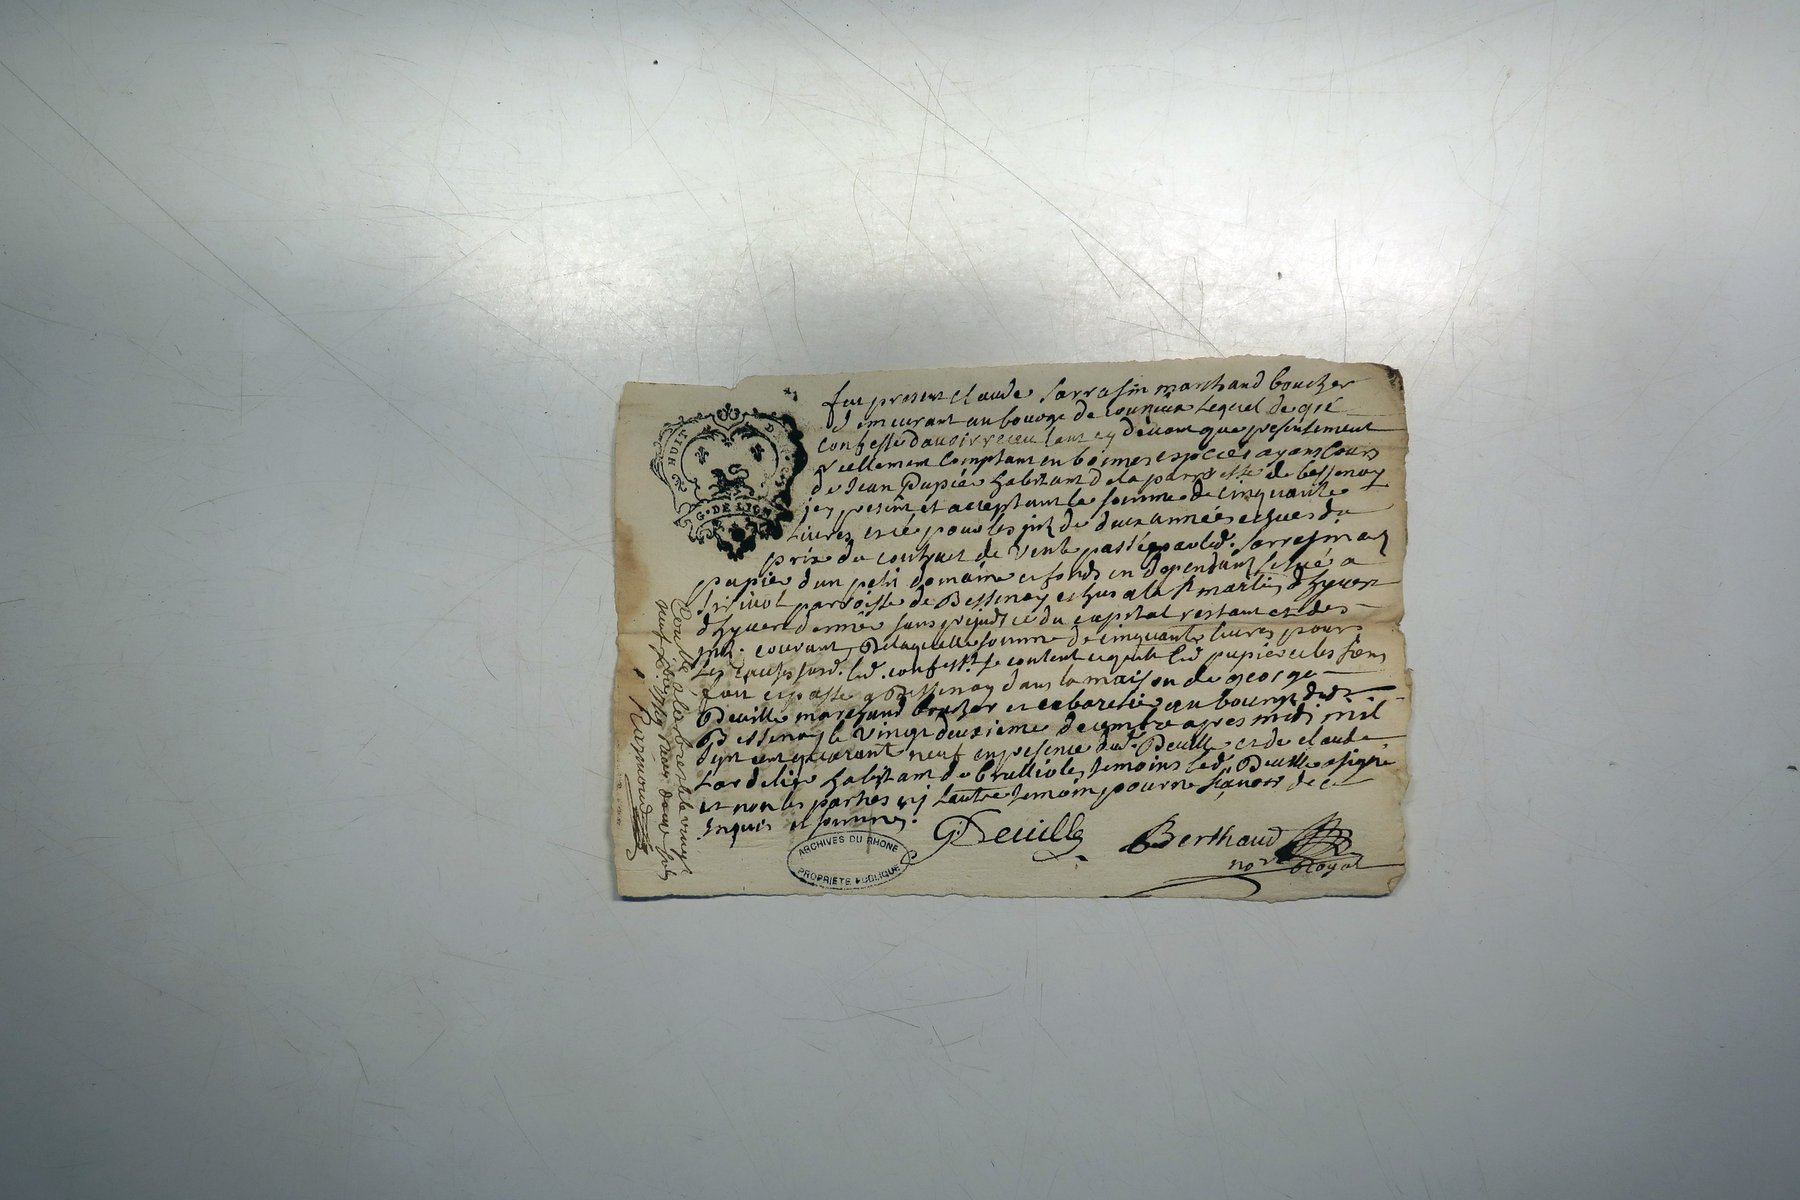 HUIT D
G. DE LION
fut present claude Sarrasin marchand boucher
demeurant au bourg de Lequel de gré
confesse davoir receu tant cy devant que presentement
reellement comptant en bonnes especes ayans cours
de Jean Papier habitant de la parroisse de bessenay
icy present et acceptant la somme de cinquante
Livres et ce pour les jnt. de deux années echues du
prix du contract de vente passé par led. Sarrasin aud
papier dun petit domaine et fonds en dependant situé a
parroisse de Bessenay echus a la st martin dhyver
dhyver dernier sans prejudice du capital restant et des
jnt. courant, De laquelle somme de cinquante livres pour
les causes susd. led. confess.t se contente et quitte led papier et les siens
fait et passé a Bessenay dans la maison de george
Deville marchand boucher et cabaretier au bourg dud.
Bessenay le vingt deuxieme decembre apres midi mil
sept cent quarante neuf en presence dud. Deville et de claude
habitant de brullioles temoins led. Deville a signé
et non les parties ny lautre temoin pour ne scavoir de ce
Enquis et sommes.
G Deville Berthaud
no.re Royal
ARCHIVES DU RHONE
PROPRIETE PUBLIQUE
Conllé à le vingt
neuf Xbre 1749 Reçu douze sols
Raymond